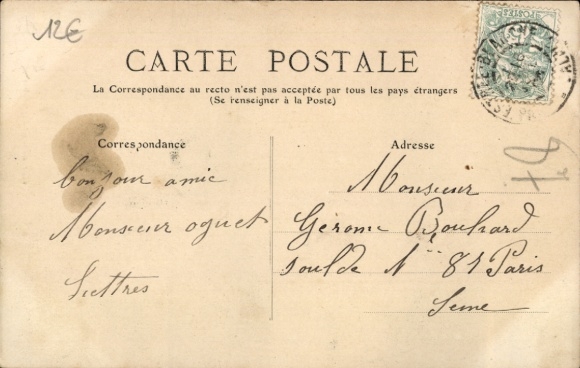 12€
CARTE POSTALE
La Correspondance au recto n'est pas acceptée par tous les pays étrangers
(Se renseigner à la Poste)
Correspondance
Adresse
bonjour amic
Monsieur oguet
Luttres
Monsieur
Gérome Boulhard
soulde N° 81 Paris
Seine